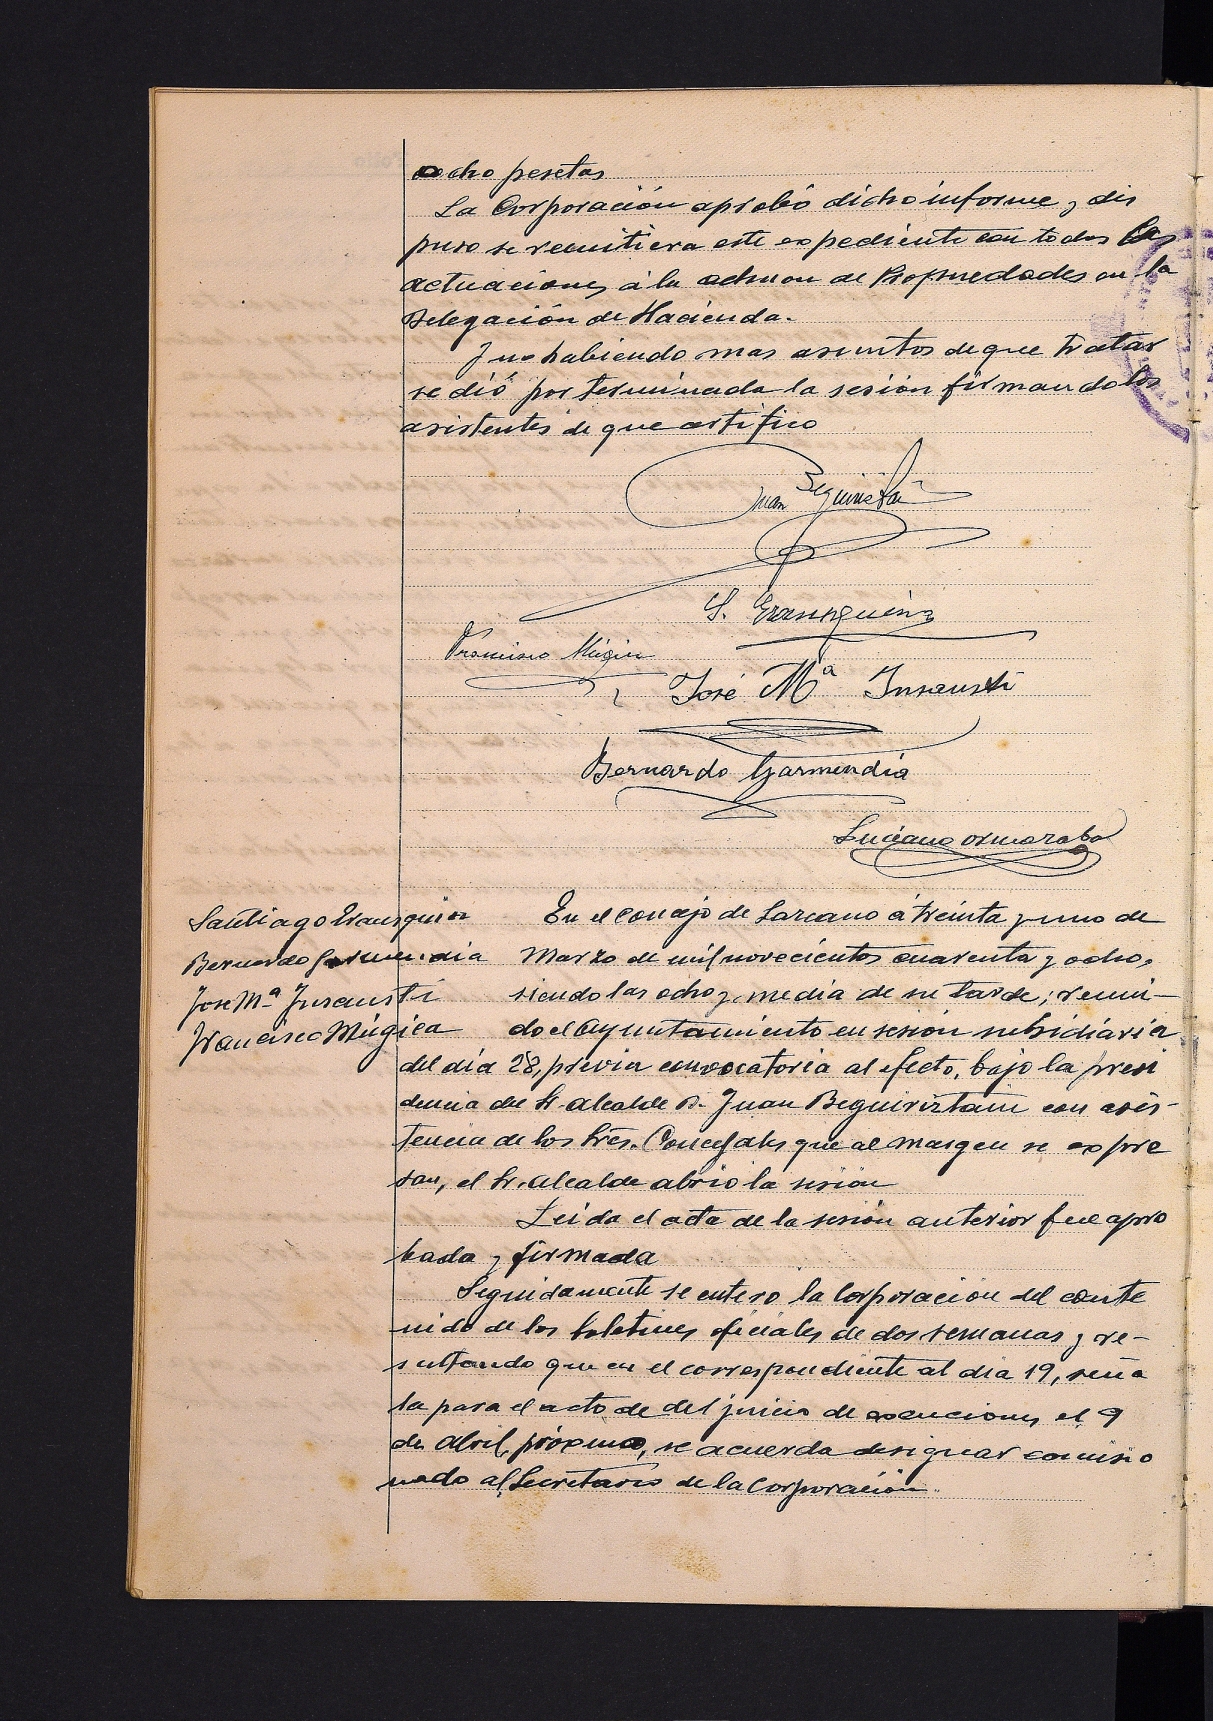 ocho pesetas
La Corporación aprobó dicho informe y dis
puso se remitiera este expediente con todas las
actuaciones a la admon de Propiedades en la
Delegación de Hacienda.
Y no habiendo mas asuntos de que tratar
se dió por terminada la sesión firmando los
asistentes de que certifico
Juan Beguiristain
S. Erausquin
Francisco Múgica
José Mª Insausti
Bernardo Garmendia
Luciano
Santiago Erausquin
Bernardo Garmendia
Jose Mª Insausti
Francisco Múgica
En el Concejo de Lazcano á treinta y uno de
Marzo de mil novecientos cuarenta y ocho,
siendo las ocho y media de su tarde; reuni-
do el Ayuntamiento en sesión subsidiaria
del día 28, previa convocatoria al efecto, bajo la presi
dencia del Sr. Alcalde D. Juan Beguiriztain con asis-
tencia de los Sres. Concejales que al margen se expre
san, el Sr. Alcalde abrió la sesión
Leida el acta de la sesión anterior fue apro
bada y firmada
Seguidamente se entero la Corporación del conte
nido de los boletines oficiales de dos semanas y re-
sultando que en el correspondiente al dia 19, seña
la para el acto de del juicio de exenciones el 9
de Abril próximo, se acuerda designar comisio
nado al Secretario de la Corporación.